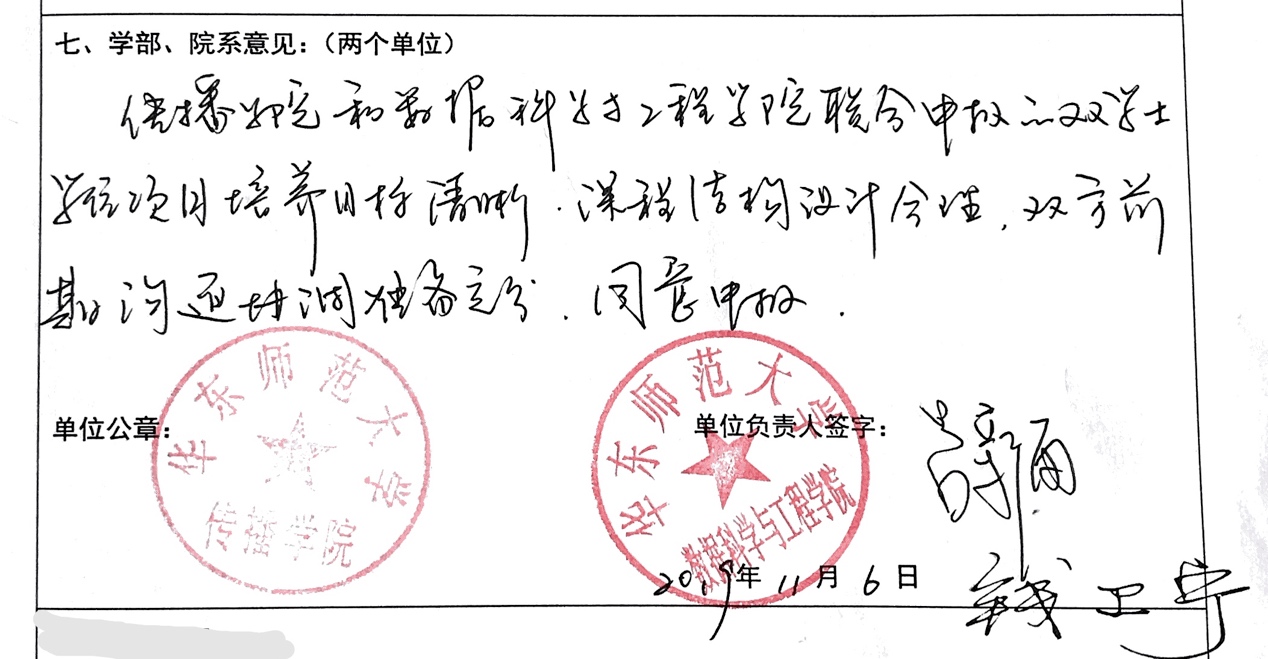 七、学部、院系意见：（两个单位）
传播学院和数据科学与工程学院联合申报的双学士
学位项目培养目标清晰，课程结构设计合理，双方前
期沟通协调准备充分，同意申报。
华东师范大学
传播学院
华东师范大学
数据科学与工程学院
单位公章：
单位负责人签字：
钱卫宁
2019年11月6日